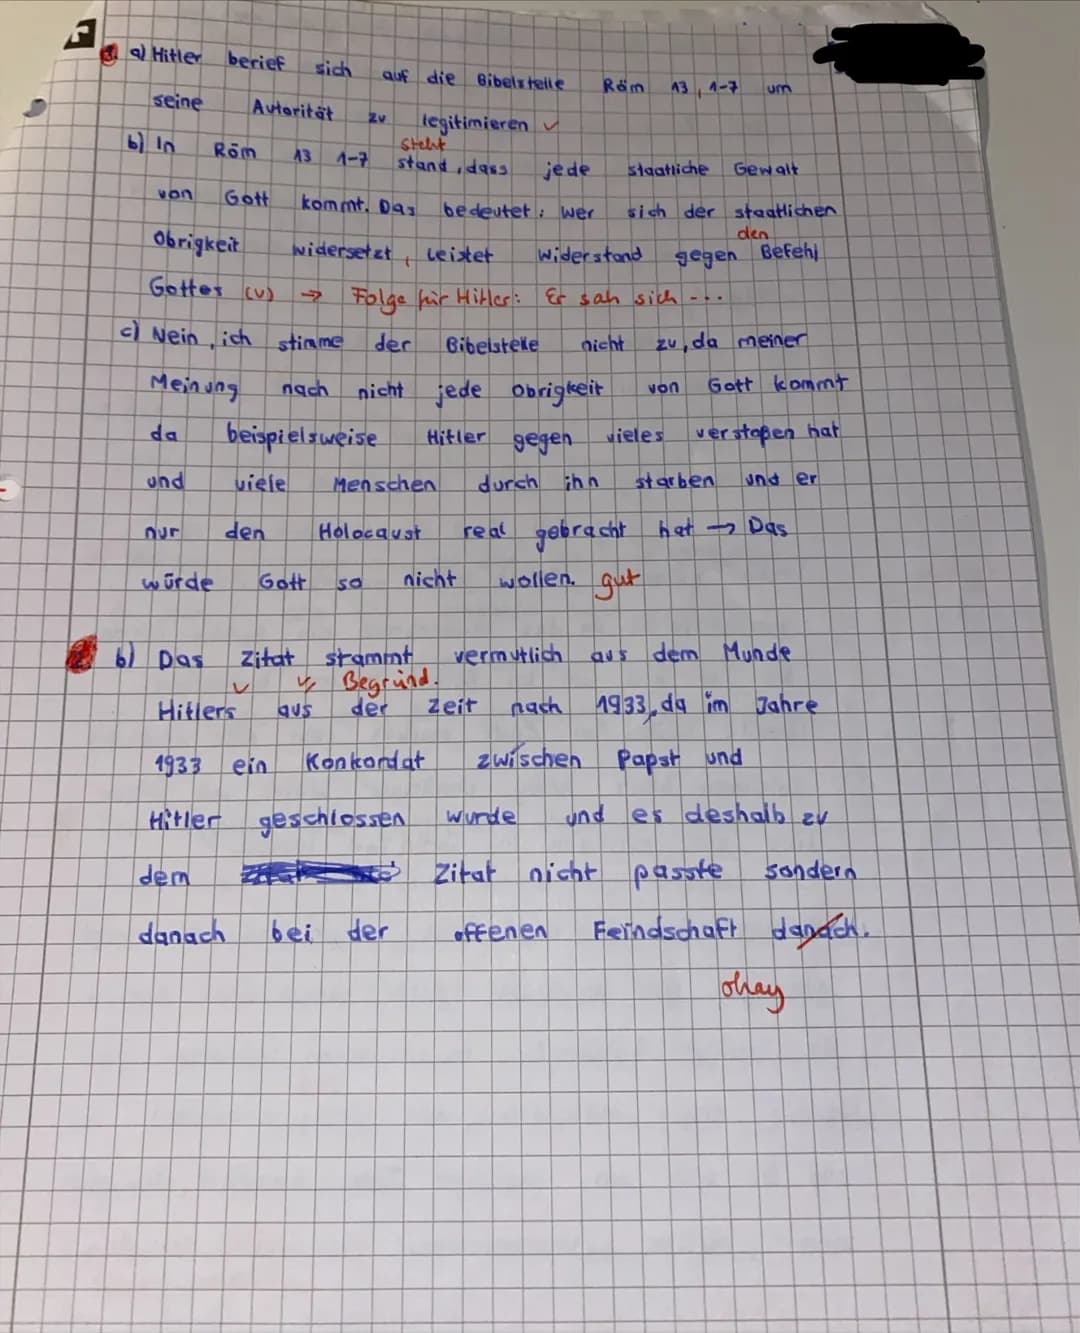 3. a) Hitler berief sich auf die Bibelstelle Röm 13, 1-7 um
seine Autorität zu legitimieren ✓
steht
b) In Röm 13 1-7 stand, dass jede staatliche Gewalt
von Gott kommt. Das bedeutet: wer sich der staatlichen
den
Obrigkeit widersetzt, leistet Widerstand gegen Befehl
Gottes (✓) → Folge für Hitler: Er sah sich ...
c) Nein, ich stimme der Bibelstelle nicht zu, da meiner
Meinung nach nicht jede Obrigkeit von Gott kommt
da beispielsweise Hitler gegen vieles verstoßen hat
und viele Menschen durch ihn starben und er
nur den Holocaust real gebracht hat → Das
würde Gott so nicht wollen. gut
2. b) Das Zitat stammt vermutlich aus dem Munde
✓ ✓ Begründ.
Hitlers aus der Zeit nach 1933, da im Jahre
1933 ein Konkordat zwischen Papst und
Hitler geschlossen wurde und es deshalb zu
dem Zitat nicht passte sondern
danach bei der offenen Feindschaft danach.
okay